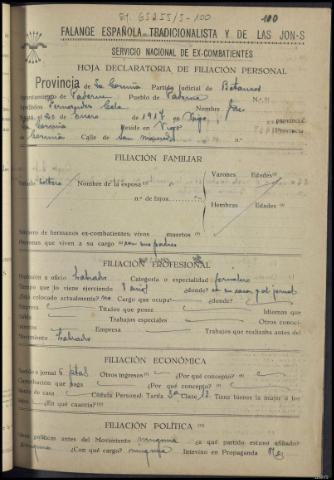 EM. 65255/S-100
100
FALANGE ESPAÑOLA TRADICIONALISTA Y DE LAS JON-S
SERVICIO NACIONAL DE EX-COMBATIENTES
HOJA DECLARATORIA DE FILIACIÓN PERSONAL
Provincia de La Coruña Partido judicial de Betanzos
Paderne Pueblo de Paderne N.º 11
Fernandez Cela Nombre Jose
20 de Enero de 1917 en Vigo provincia
La Coruña Reside en Vigo
Coruña Calle de San
FILIACIÓN FAMILIAR
soltero Nombre de la esposa Varones Edades
n.º de hijos Hembras Edades
Número de hermanos ex-combatientes vivos muertos
Personas que viven a su cargo con sus padres
FILIACIÓN PROFESIONAL
Profesión u oficio Labrador Categoría o especialidad
Tiempo que lo viene ejerciendo 8 años ¿dónde? en su casa y al jornal
¿Está colocado actualmente? no Cargo que ocupa ¿desde?
Títulos que posee Idiomas que
Trabajos especiales Otros conoci-
Empresa Trabajos que realizaba antes del
Movimiento Labrador
FILIACIÓN ECONÓMICA
Sueldo o jornal 6 ptas Otros ingresos ¿Por qué concepto?
Contribución que paga ¿Por qué concepto?
de casa Cédula Personal: Tarifa 3ª Clase 13 Tiene bienes la mujer o los
¿En qué cuantía?
FILIACIÓN POLÍTICA
políticos antes del Movimiento ninguna ¿a qué partido estuvo afiliado?
ninguno ¿Con qué cargo? ninguno Intervino en Propaganda No